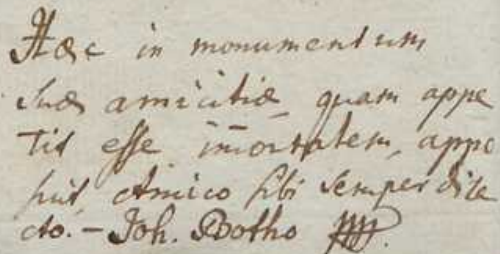 Hæc in monumentum
suæ amicitiæ, quam appe
tit esse im̄ortalem, appo
suit Amico sibi semper dile
cto. - Joh. Botho